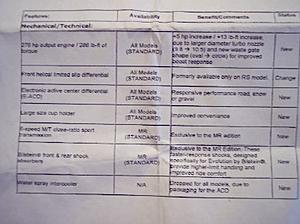 Features:
Availability
Benefit/Comments
Status
Mechanical/Technical:
276 hp output engine / 286 lb-ft of torque
All Models
(STANDARD)
+5 hp increase / +13 lb-ft increase,
due to larger diameter turbo nozzle
(9.8 → 10.5) and new waste gate
shape (oval → circle) for improved
boost response
New
Front helical limited slip differential
All Models
(STANDARD)
Formerly available only on RS model.
Change
Electronic active center differential
(S-ACD)
All Models
(STANDARD)
Responsive performance road, snow
or gravel
New
Large size cup holder
All Models
(STANDARD)
Improved convenience
New
6-speed M/T close-ratio sport
transmission
MR
(STANDARD)
Exclusive to the MR Edition
New
Bilstein® front & rear shock
absorbers
MR
(STANDARD)
Exclusive to the MR Edition. These
faster-response shocks, designed
specifically for Evolution by Bilstein®,
provide higher-limit handling and
improved ride comfort
New
Water spray intercooler
N/A
Dropped for all models, due to
packaging for the ACD
New